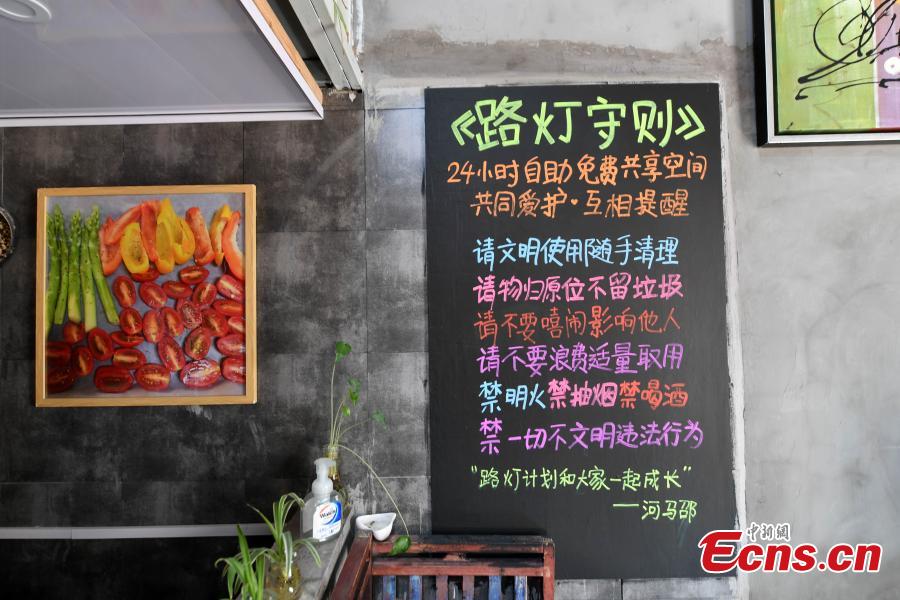 《路灯守则》
24小时自助免费共享空间
共同爱护·互相提醒
请文明使用随手清理
请物归原位不留垃圾
请不要嘻闹影响他人
请不要浪费适量取用
禁明火禁抽烟禁喝酒
禁一切不文明违法行为
“路灯计划和大家一起成长”
——河马邵
Walch
中新網
Ecns.cn